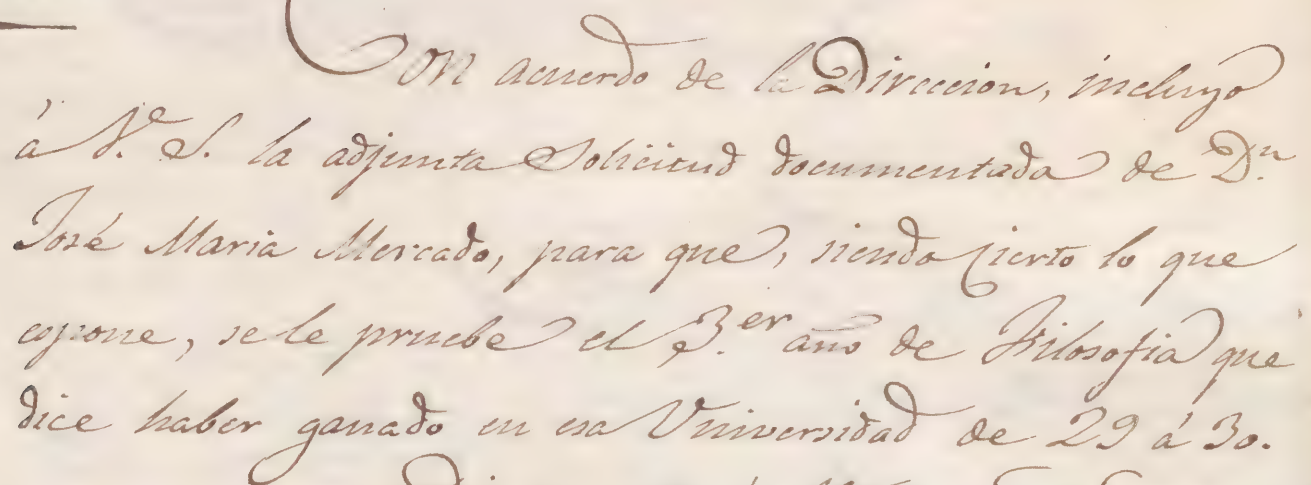 Con acuerdo de la Direccion, incluyo
á V.e S. la adjunta Solicitud documentada de D.n
José Maria Mercado, para que, siendo cierto lo que
espone, se le pruebe el 3.er año de Filosofia que
dice haber ganado en esa Universidad de 29 á 30.